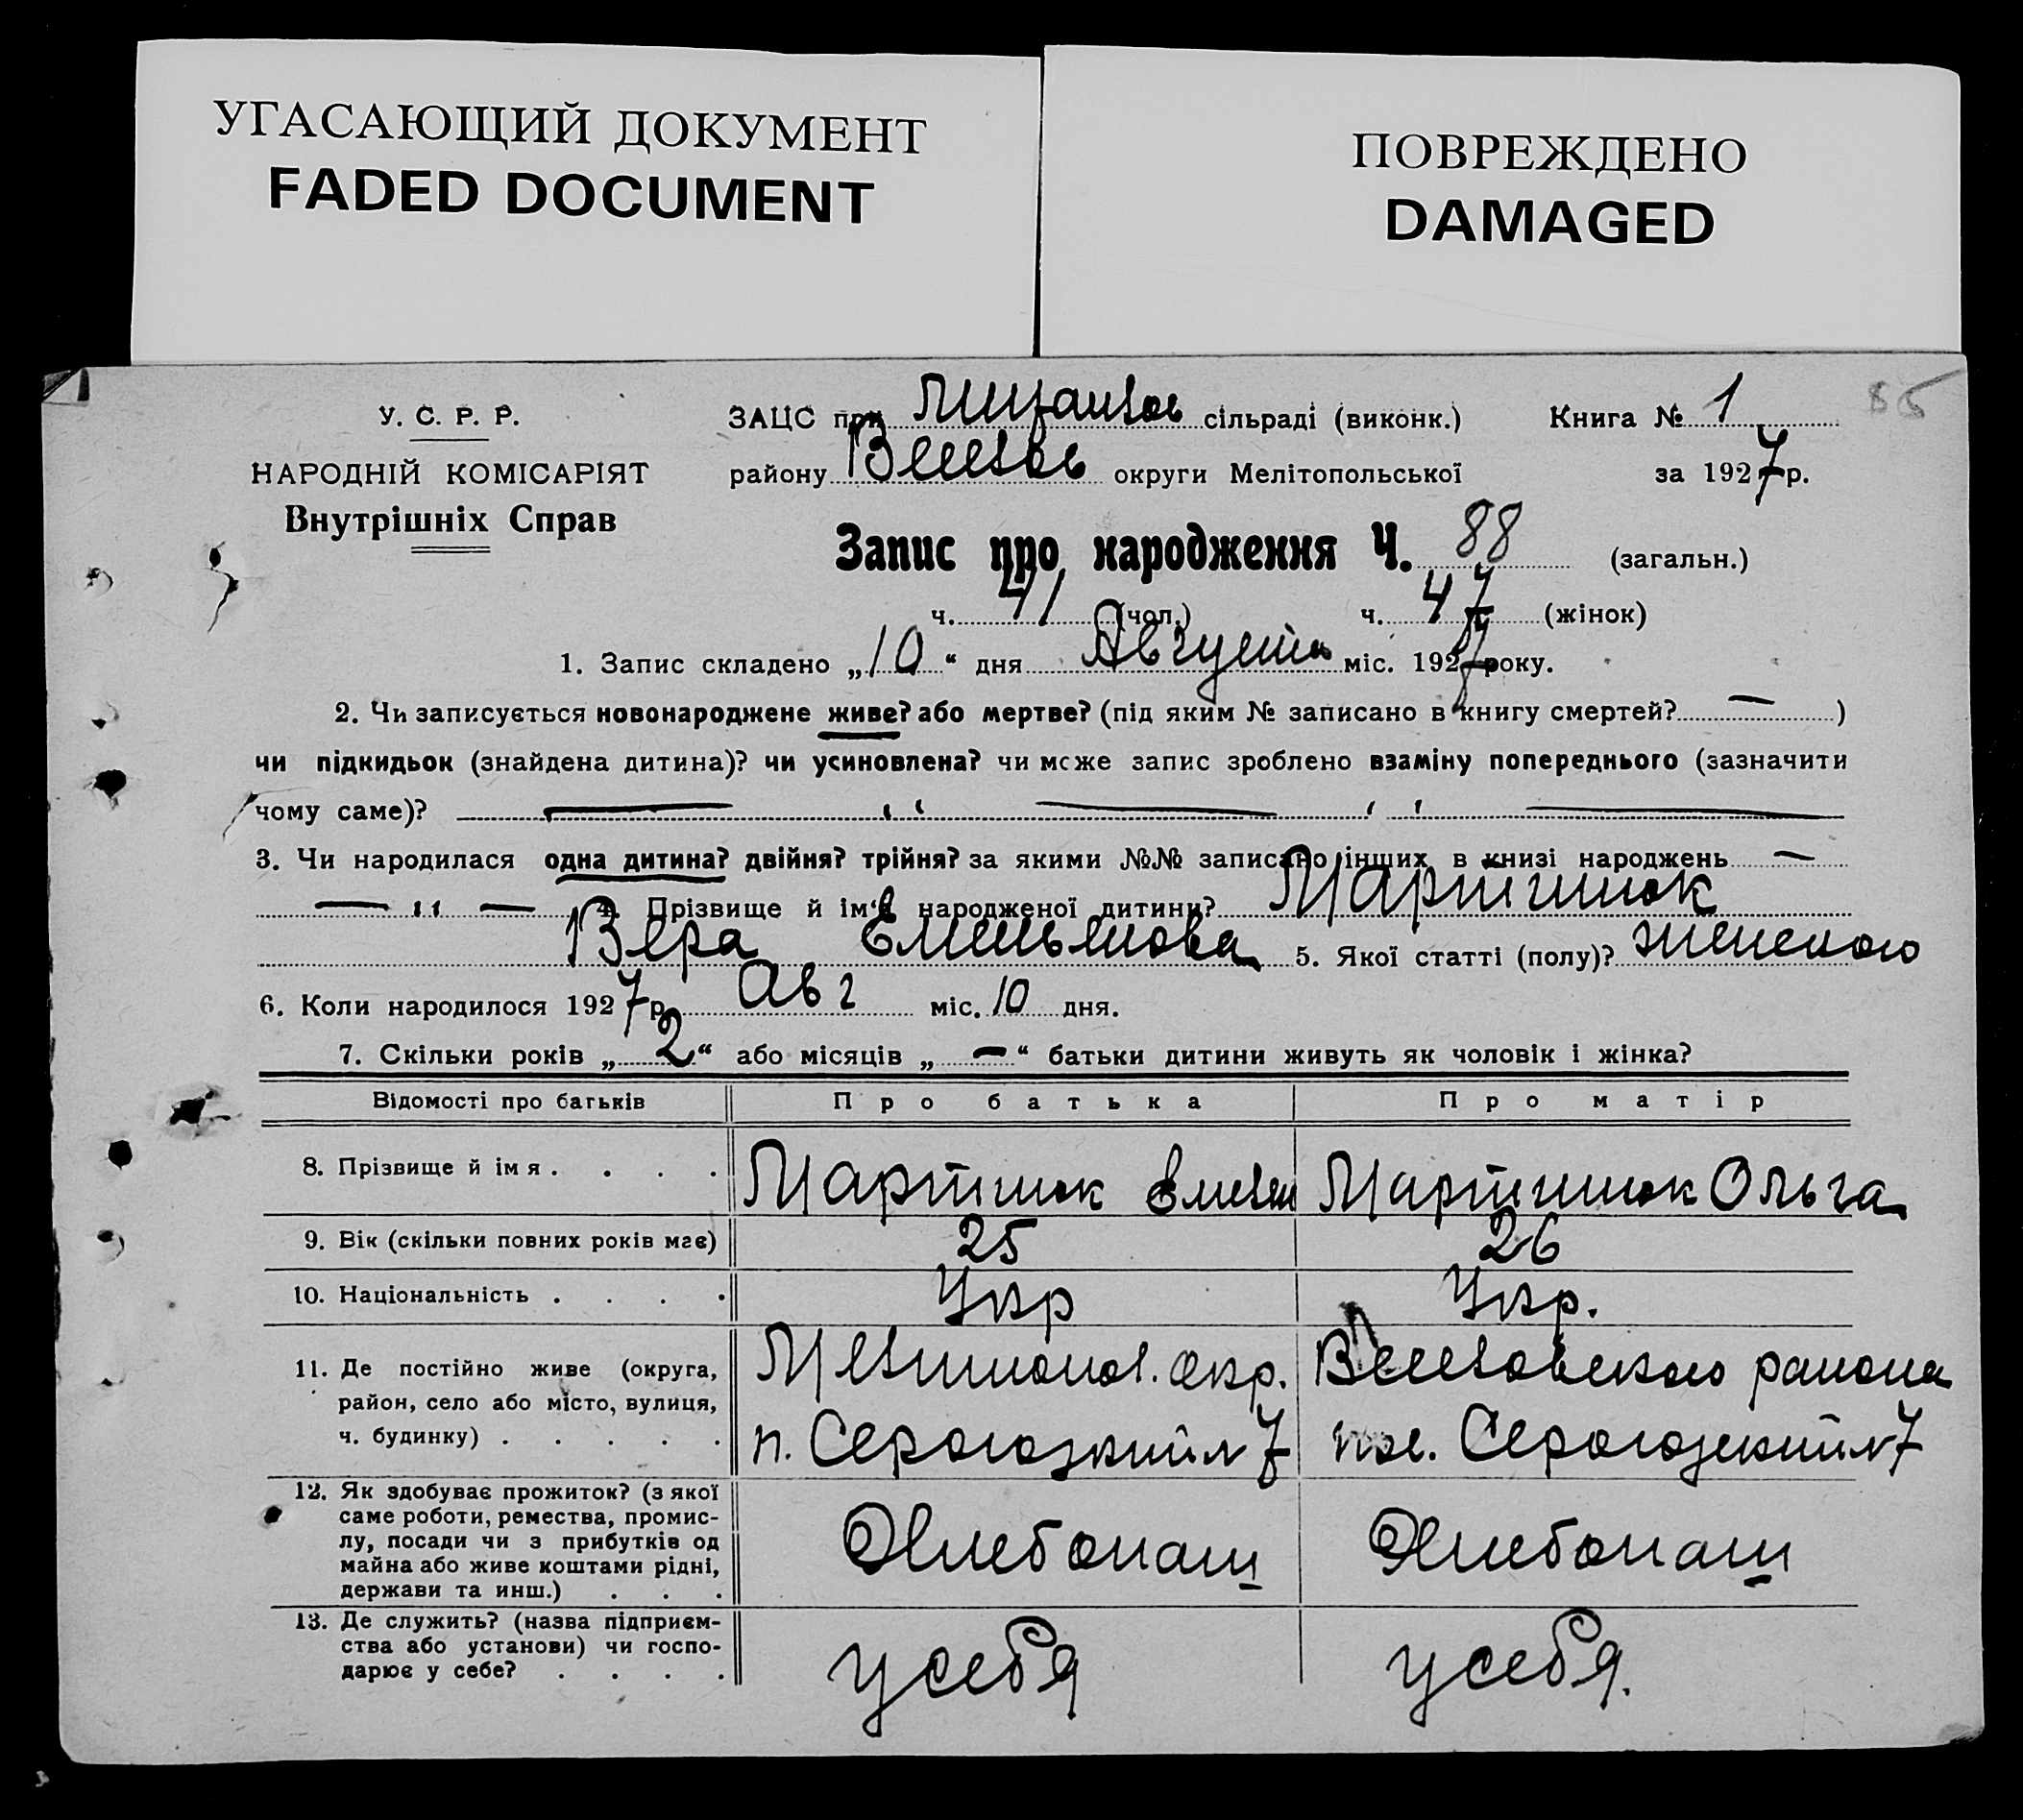 УГАСАЮЩИЙ ДОКУМЕНТ
FADED DOCUMENT
ПОВРЕЖДЕНО
DAMAGED
У. С. Р. Р.
НАРОДНІЙ КОМІСАРІЯТ
Внутрішніх Справ
ЗАЦС при сільраді (виконк.) Книга № 1
району округи Мелітопольської за 1927 р.
Запис про народження Ч. 88 (загальн.)
ч. 41 (чол.) ч. 47 (жінок)
1. Запис складено „10“ дня Августа міс. 1927 року.
2. Чи записується новонароджене живе? або мертве? (під яким № записано в книгу смертей? — )
чи підкидьок (знайдена дитина)? чи усиновлена? чи може запис зроблено взаміну попереднього (зазначити
чому саме)? — „ — „ —
3. Чи народилася одна дитина? двійня? трійня? за якими №№ записано інших в книзі народжень —
— „ — 4. Прізвище й ім'я народженої дитини? Мартинюк
Вера Емельянова 5. Якої статті (полу)? женского
6. Коли народилося 1927 р. Авг міс. 10 дня.
7. Скільки років „2“ або місяців „—“ батьки дитини живуть як чоловік і жінка?
Відомості про батьків Про батька Про матір
8. Прізвище й імя . . . . Мартинюк Емельян Мартинюк Ольга
9. Вік (скільки повних років має) 25 26
10. Національність . . . . Укр Укр.
11. Де постійно живе (округа, район, село або місто, вулиця, ч. будинку) . . . . . Мелитопол. окр. Веселовского района
п. Серогозкий № 7 пос. Серогозский № 7
12. Як здобуває прожиток? (з якої саме роботи, ремества, промислу, посади чи з прибутків од майна або живе коштами рідні, держави та инш.) . . . Хлебопаш Хлебопаш
13. Де служить? (назва підприємства або установи) чи господарює у себе? . . . . у себя у себя.